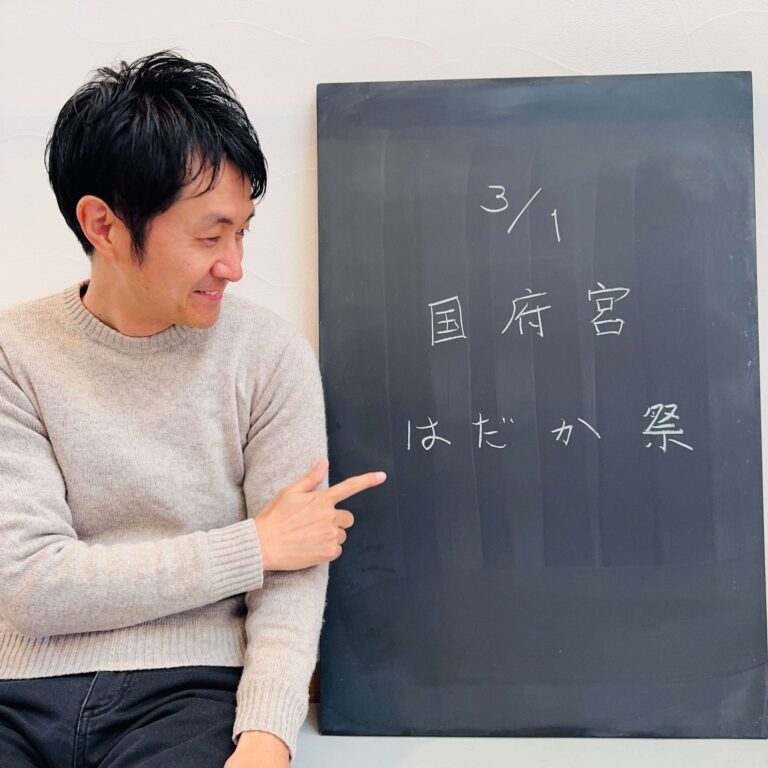 3/1
国府宮
はだか祭